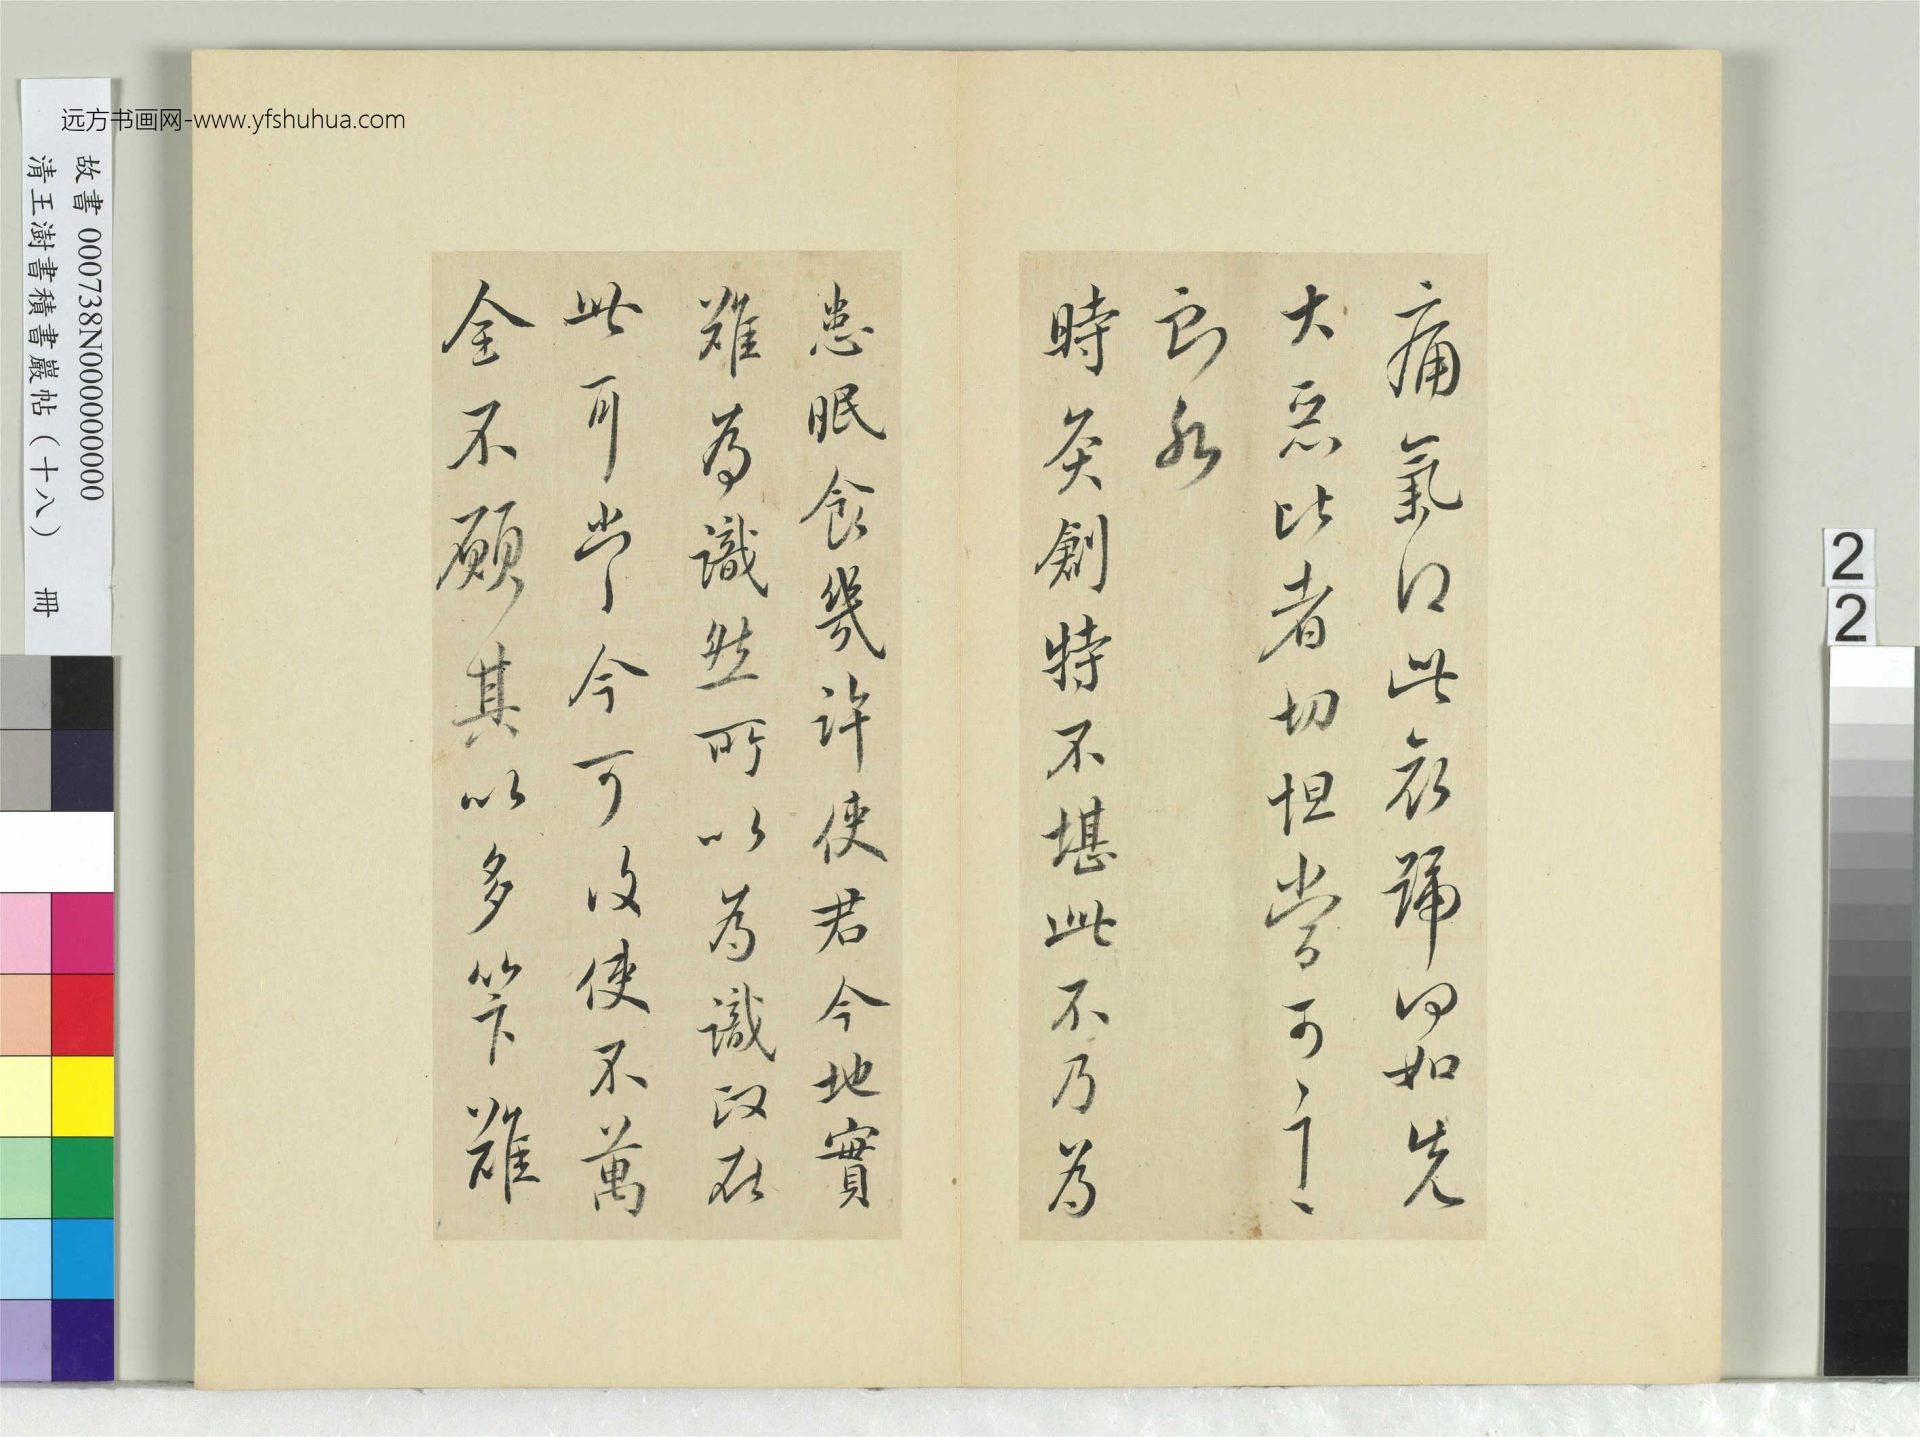 痛氣此哀號如先
大惡比者切怛當可言
時灸創特不堪此不乃為
患眠食幾許使君今地實
難為識然所以為識政在
此耳當今可復使不萬
全不其以多筭難
远方书画网-www.yfshuhua.com
故書 000738N000000000
清王澍書積書巖帖（十八） 冊
2
2